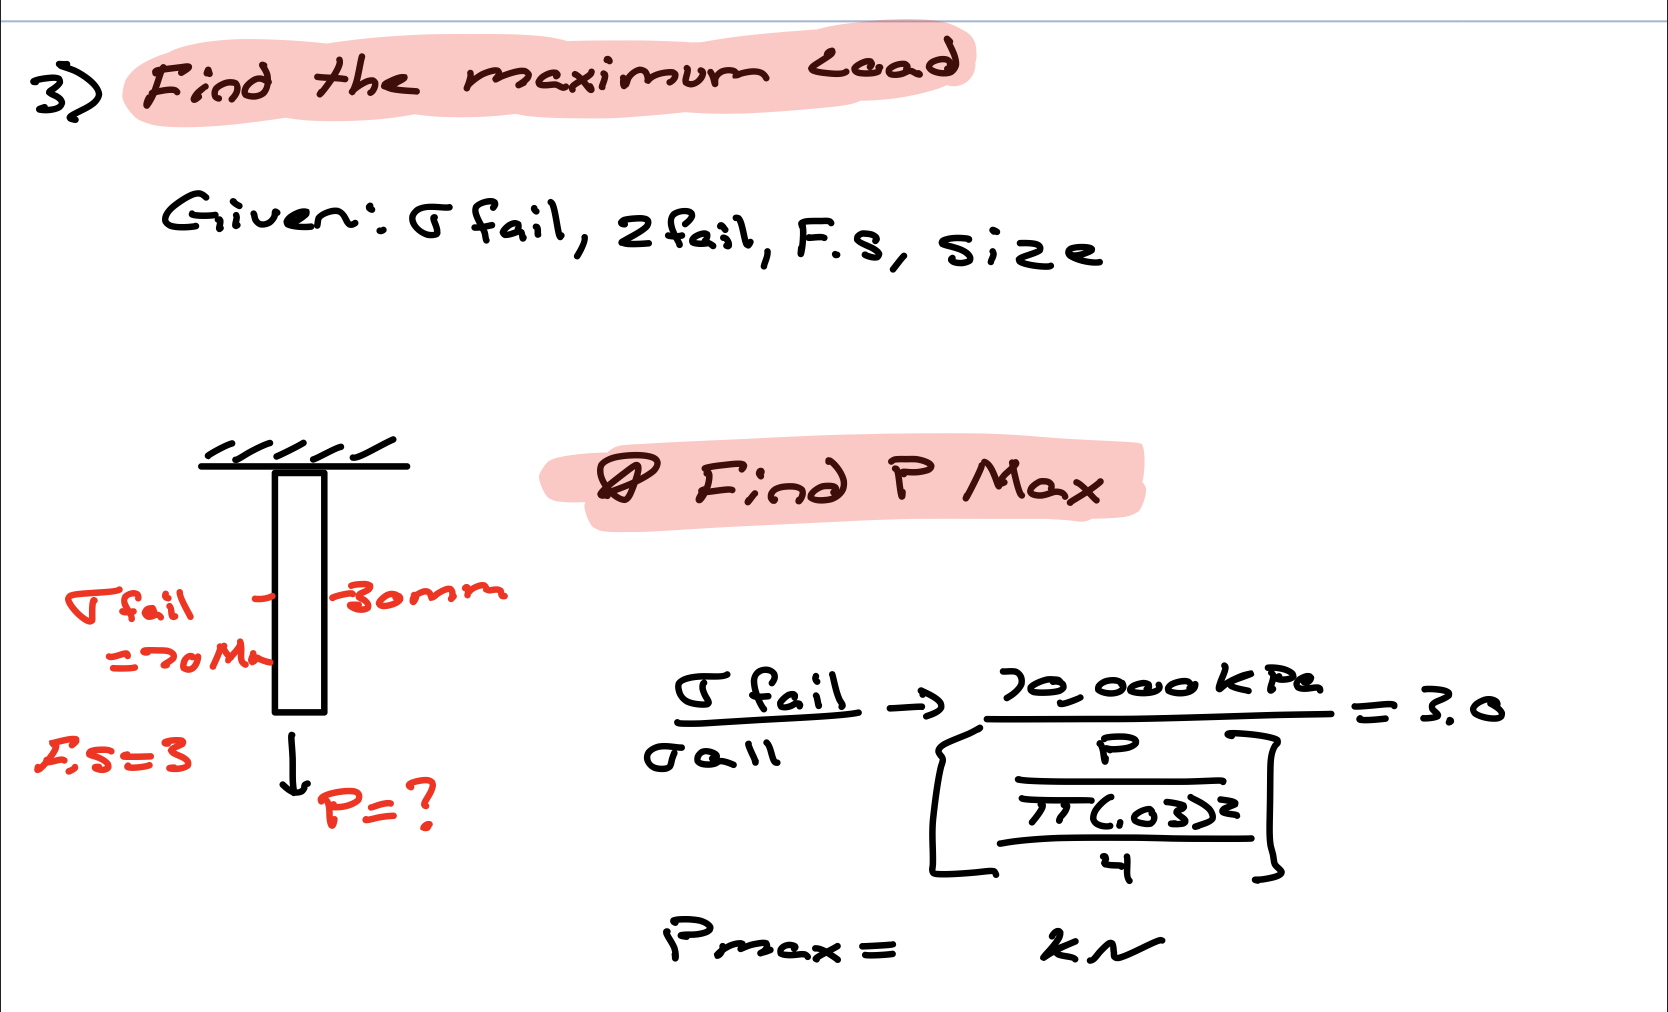 3) Find the maximum Load
Given: σ fail, τ fail, F.S, size
Ø Find P Max
σ fail
= 70 MPa
30mm
F.S = 3
P = ?
σ fail / σ all → 70,000 kPa / [P / (π(.03)² / 4)] = 3.0
P max = kN